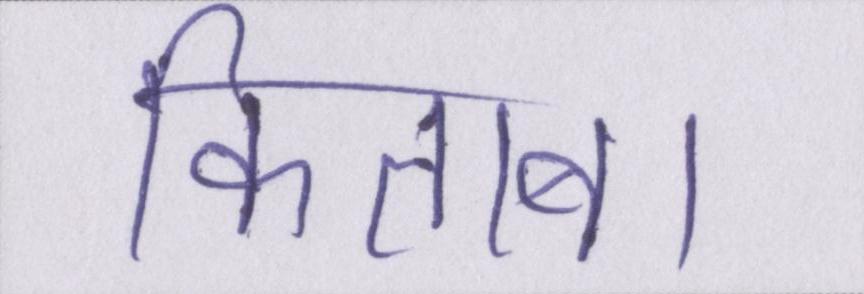 किताब।